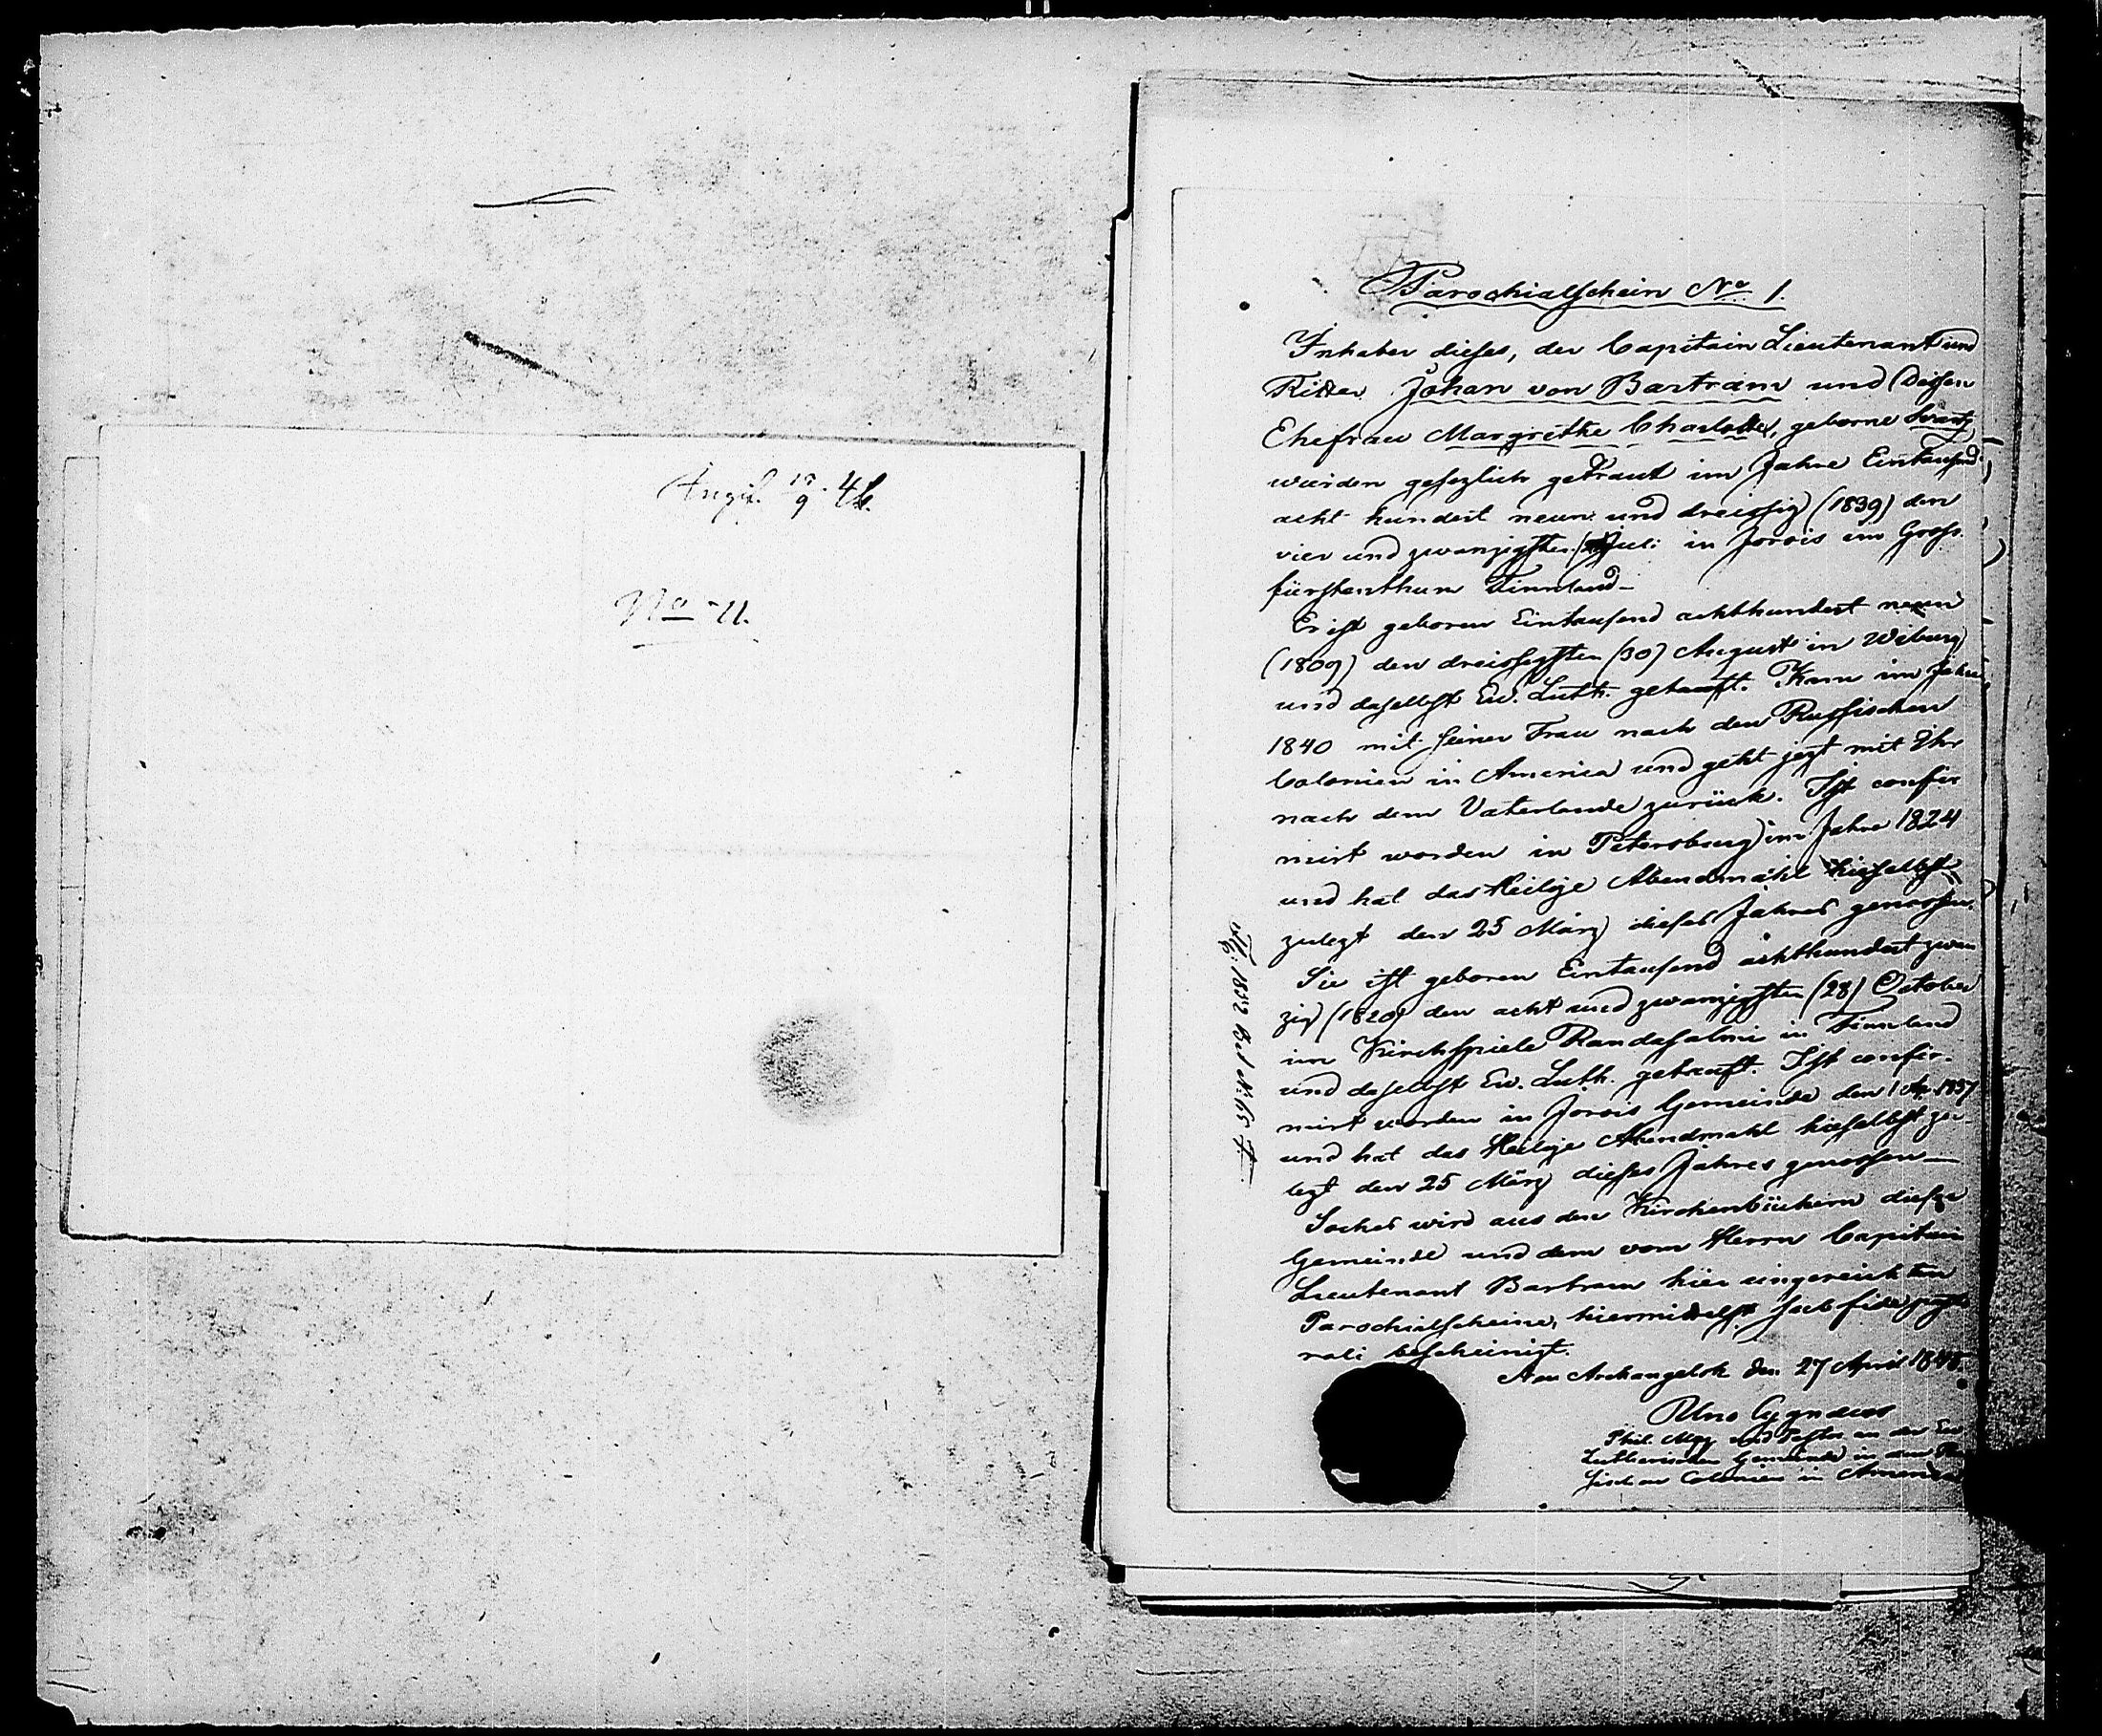 Angif. 18/9. 46.
No 11.
Parochialschein No 1.
Inhaber dieses, der Capitain Lieutenant und
Ritter Johan von Bartram und dessen
Ehefrau Margrethe Charlotte, geborne
wurden gesezlich getraut im Jahre Eintausend
acht hundert neun und dreissig (1839) den
vier und zwanzigsten Juli in Jorois im Gross-
fürstenthum Finnland –
Er ist geboren Eintausend achthundert neun
(1809) den dreissigsten (30) August in Wiburg
und daselbst Ev. Luth. getauft. Kam im Jahre
1840 mit seiner Frau nach den Russischen
Colonien in America und geht jezt mit Ihr
nach dem Vaterlande zurück. Ist confir
mirt worden in Petersburg im Jahre 1824
und hat das Heilige Abendmahl hieselbst
zulezt den 25 März dieses Jahres genossen.
Sie ist geboren Eintausend achthundert zwan
zig (1820) den acht und zwanzigsten (28) October
im Kirchspiele Randasalmi in Finnland
und daselbst Ev. Luth. getauft. Ist confir-
mirt worden in Jorois Gemeinde den 1 1837
und hat das Heilige Abendmahl hieselbst zu-
lezt den 25 März dieses Jahres genossen –
Solches wird aus den Kirchenbüchern dieser
Gemeinde und dem vom Herrn Capitain
Lieutenant Bartram hier eingereichten
Parochialscheine, hiermittelst sub fide pasto
rali bescheinigt.
Neu Archangelsk den 27 April 1845.
Uno Cygnaeus
Phil. Mag. und Pastor an der Ev
Lutherischen Gemeinde in den Rus
sischen Colonien in America
1852